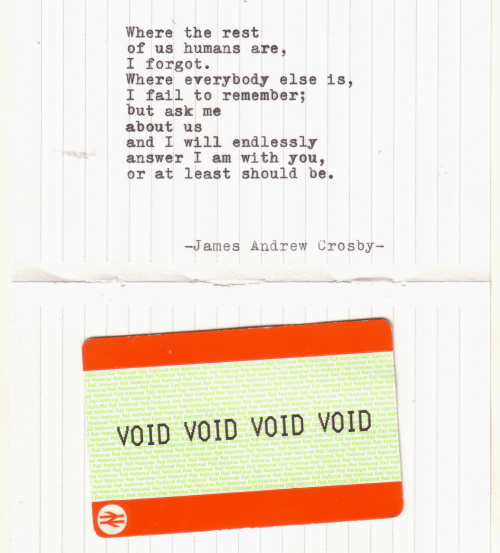 Where the rest
of us humans are,
I forgot.
Where everybody else is,
I fail to remember;
but ask me
about us
and I will endlessly
answer I am with you,
or at least should be.
-James Andrew Crosby-
VOID VOID VOID VOID